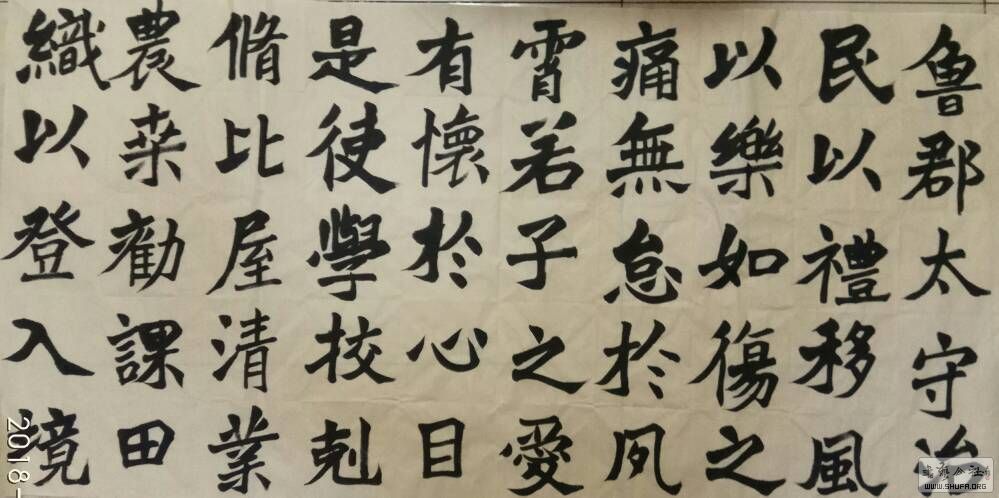 魯郡太守治
民以禮移風
以樂如傷之
痛無怠於夙
霄若子之愛
有懷於心目
是使學挍剋
脩比屋清業
農桒勸課田
織以登入境
2018-
WWW.SHUFA.ORG